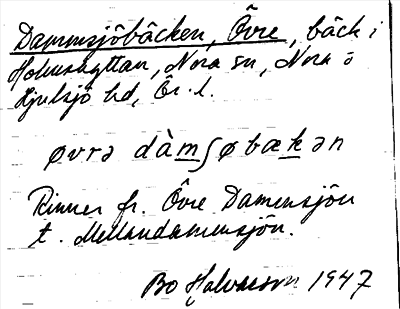 Dammsjöbäcken, Övre, bäck i
Holmshyttan, Nora sn, Nora o
Hjulsjö bd, Ör. l.
øvrə dàmʃøbækən
Rinner fr. Övre Dammsjön
t. Mellandammsjön.
Bo Halvarson 1947